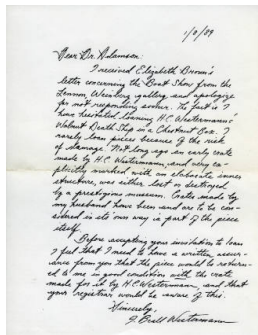 1/8/09
Dear Dr. Adamson:
I received Elizabeth Broun's
letter concerning the Boat Show from the
Lennon, Weinberg gallery and apologize
for not responding sooner. The fact is I
have hesitated loaning H.C. Westermann's
Walnut Death Ship in a Chestnut Box. I
rarely loan pieces because of the risk
of damage. Not long ago an early crate
made by H.C. Westermann, and very ex-
plicitly marked with an elaborate inner
structure, was either lost or destroyed
by a prestigious museum. Crates made by
my husband have been and are to be con-
sidered in its own way is part of the piece
itself.
Before accepting your invitation to loan
I feel that I need to have a written assur-
ance from you that the piece would be return-
ed to me in good condition with the crate
made for it by H.C. Westermann, and that
your registrar would be aware of this.
Sincerely,
Westermann